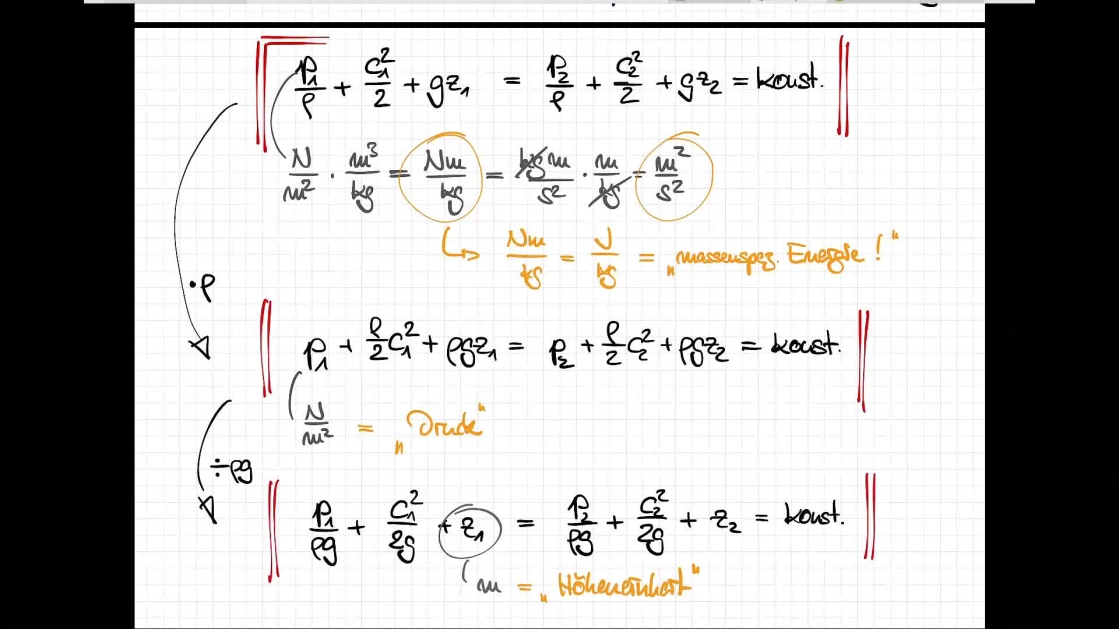 p₁/ρ + c₁²/2 + gz₁ = p₂/ρ + c₂²/2 + gz₂ = konst.
N/m² · m³/kg = Nm/kg = kgm/s² · m/kg = m²/s²
Nm/kg = J/kg = „massenspez. Energie!"
·ρ
p₁ + ρ/2 c₁² + ρgz₁ = p₂ + ρ/2 c₂² + ρgz₂ = konst.
N/m² = „Druck"
÷ρg
p₁/ρg + c₁²/2g + z₁ = p₂/ρg + c₂²/2g + z₂ = konst.
m = „Höheneinheit"